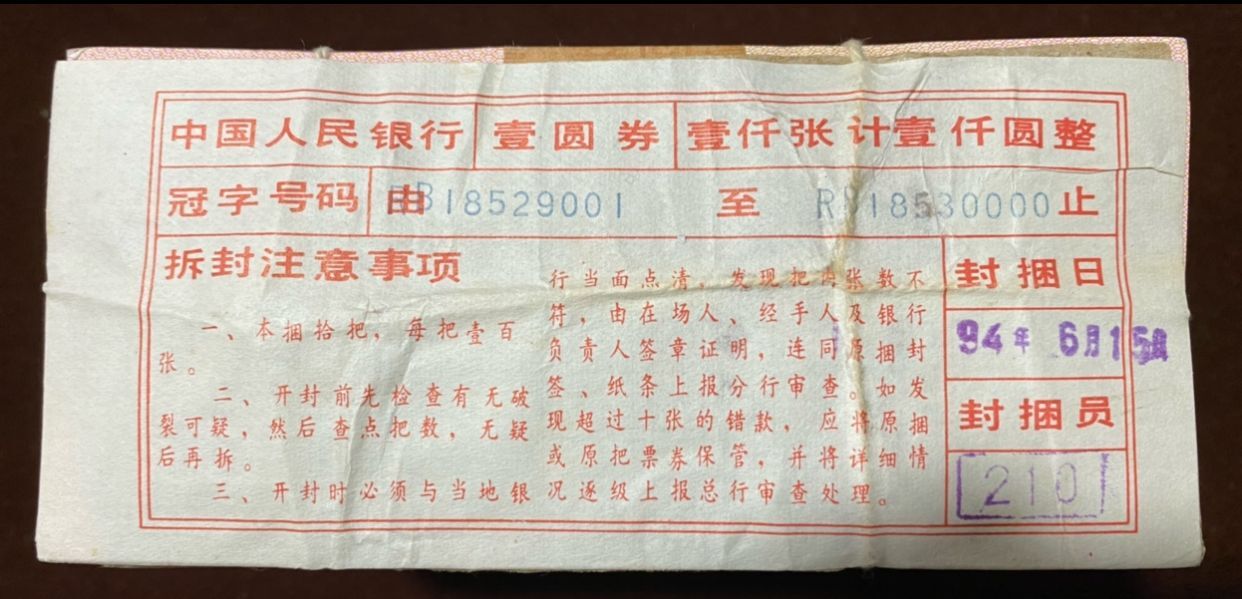 中国人民银行 壹圆券 壹仟张计壹仟圆整
冠字号码 由 RB18529001 至 RB18530000 止
拆封注意事项
一、本捆拾把，每把壹百
张。
二、开封前先检查有无破
裂可疑，然后查点把数，无疑
后再拆。
三、开封时必须与当地银
行当面点清，发现把内张数不
符，由在场人、经手人及银行
负责人签章证明，连同原捆封
签、纸条上报分行审查。如发
现超过十张的错款，应将原捆
或原把票券保管，并将详细情
况逐级上报总行审查处理。
封捆日
94年 6月15日
封捆员
210